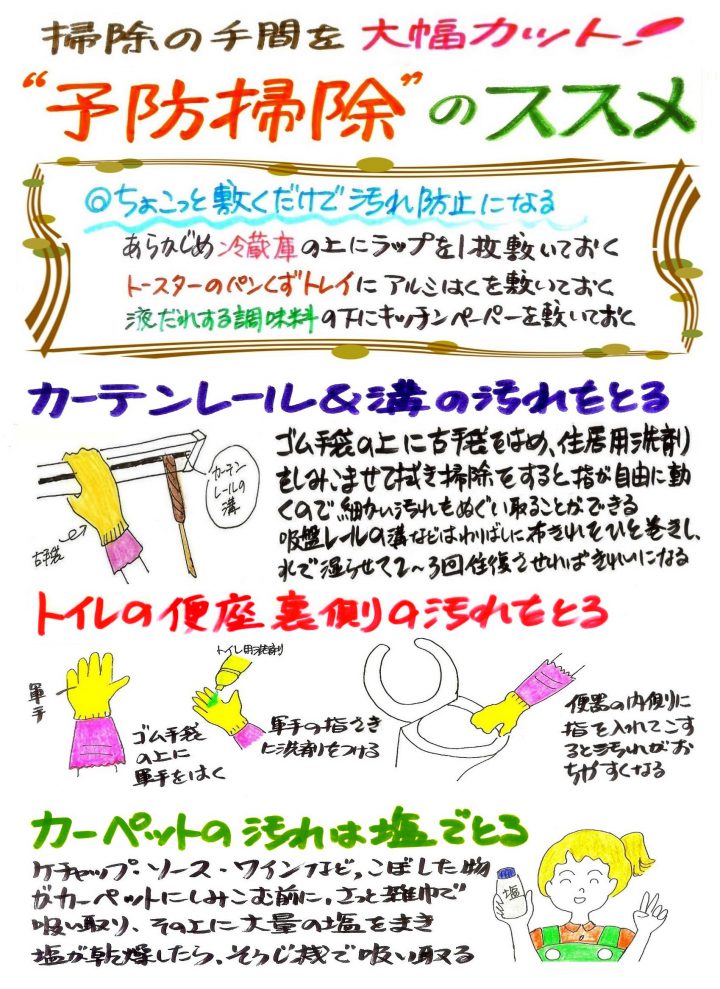 掃除の手間を大幅カット!
“予防掃除”のススメ
◎ちょこっと敷くだけで汚れ防止になる
あらかじめ冷蔵庫の上にラップを1枚敷いておく
トースターのパンくずトレイにアルミはくを敷いておく
液だれする調味料の下にキッチンペーパーを敷いておく
カーテンレール&溝の汚れをとる
ゴム手袋の上に古手袋をはめ、住居用洗剤
をしみこませて拭き掃除をすると指が自由に動
くので細かい汚れをぬぐい取ることができる
吸盤レールの溝などはわりばしに布きれをひと巻きし、
水で湿らせて2〜3回往復させればきれいになる
カーテン
レールの
溝
古手袋
トイレの便座裏側の汚れをとる
軍手
ゴム手袋
の上に
軍手をはく
トイレ用洗剤
軍手の指さき
に洗剤をつける
便器の内側に
指を入れてこす
ると汚れがお
ちやすくなる
カーペットの汚れは塩でとる
ケチャップ・ソース・ワインなど、こぼした物
がカーペットにしみこむ前に、さっと雑巾で
吸い取り、その上に大量の塩をまき
塩が乾燥したら、そうじ機で吸い取る
塩